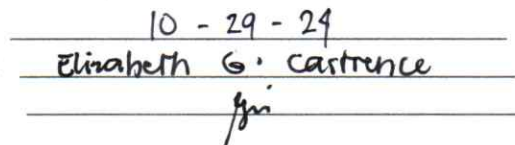 10 - 29 - 24
Elizabeth G. Castrence